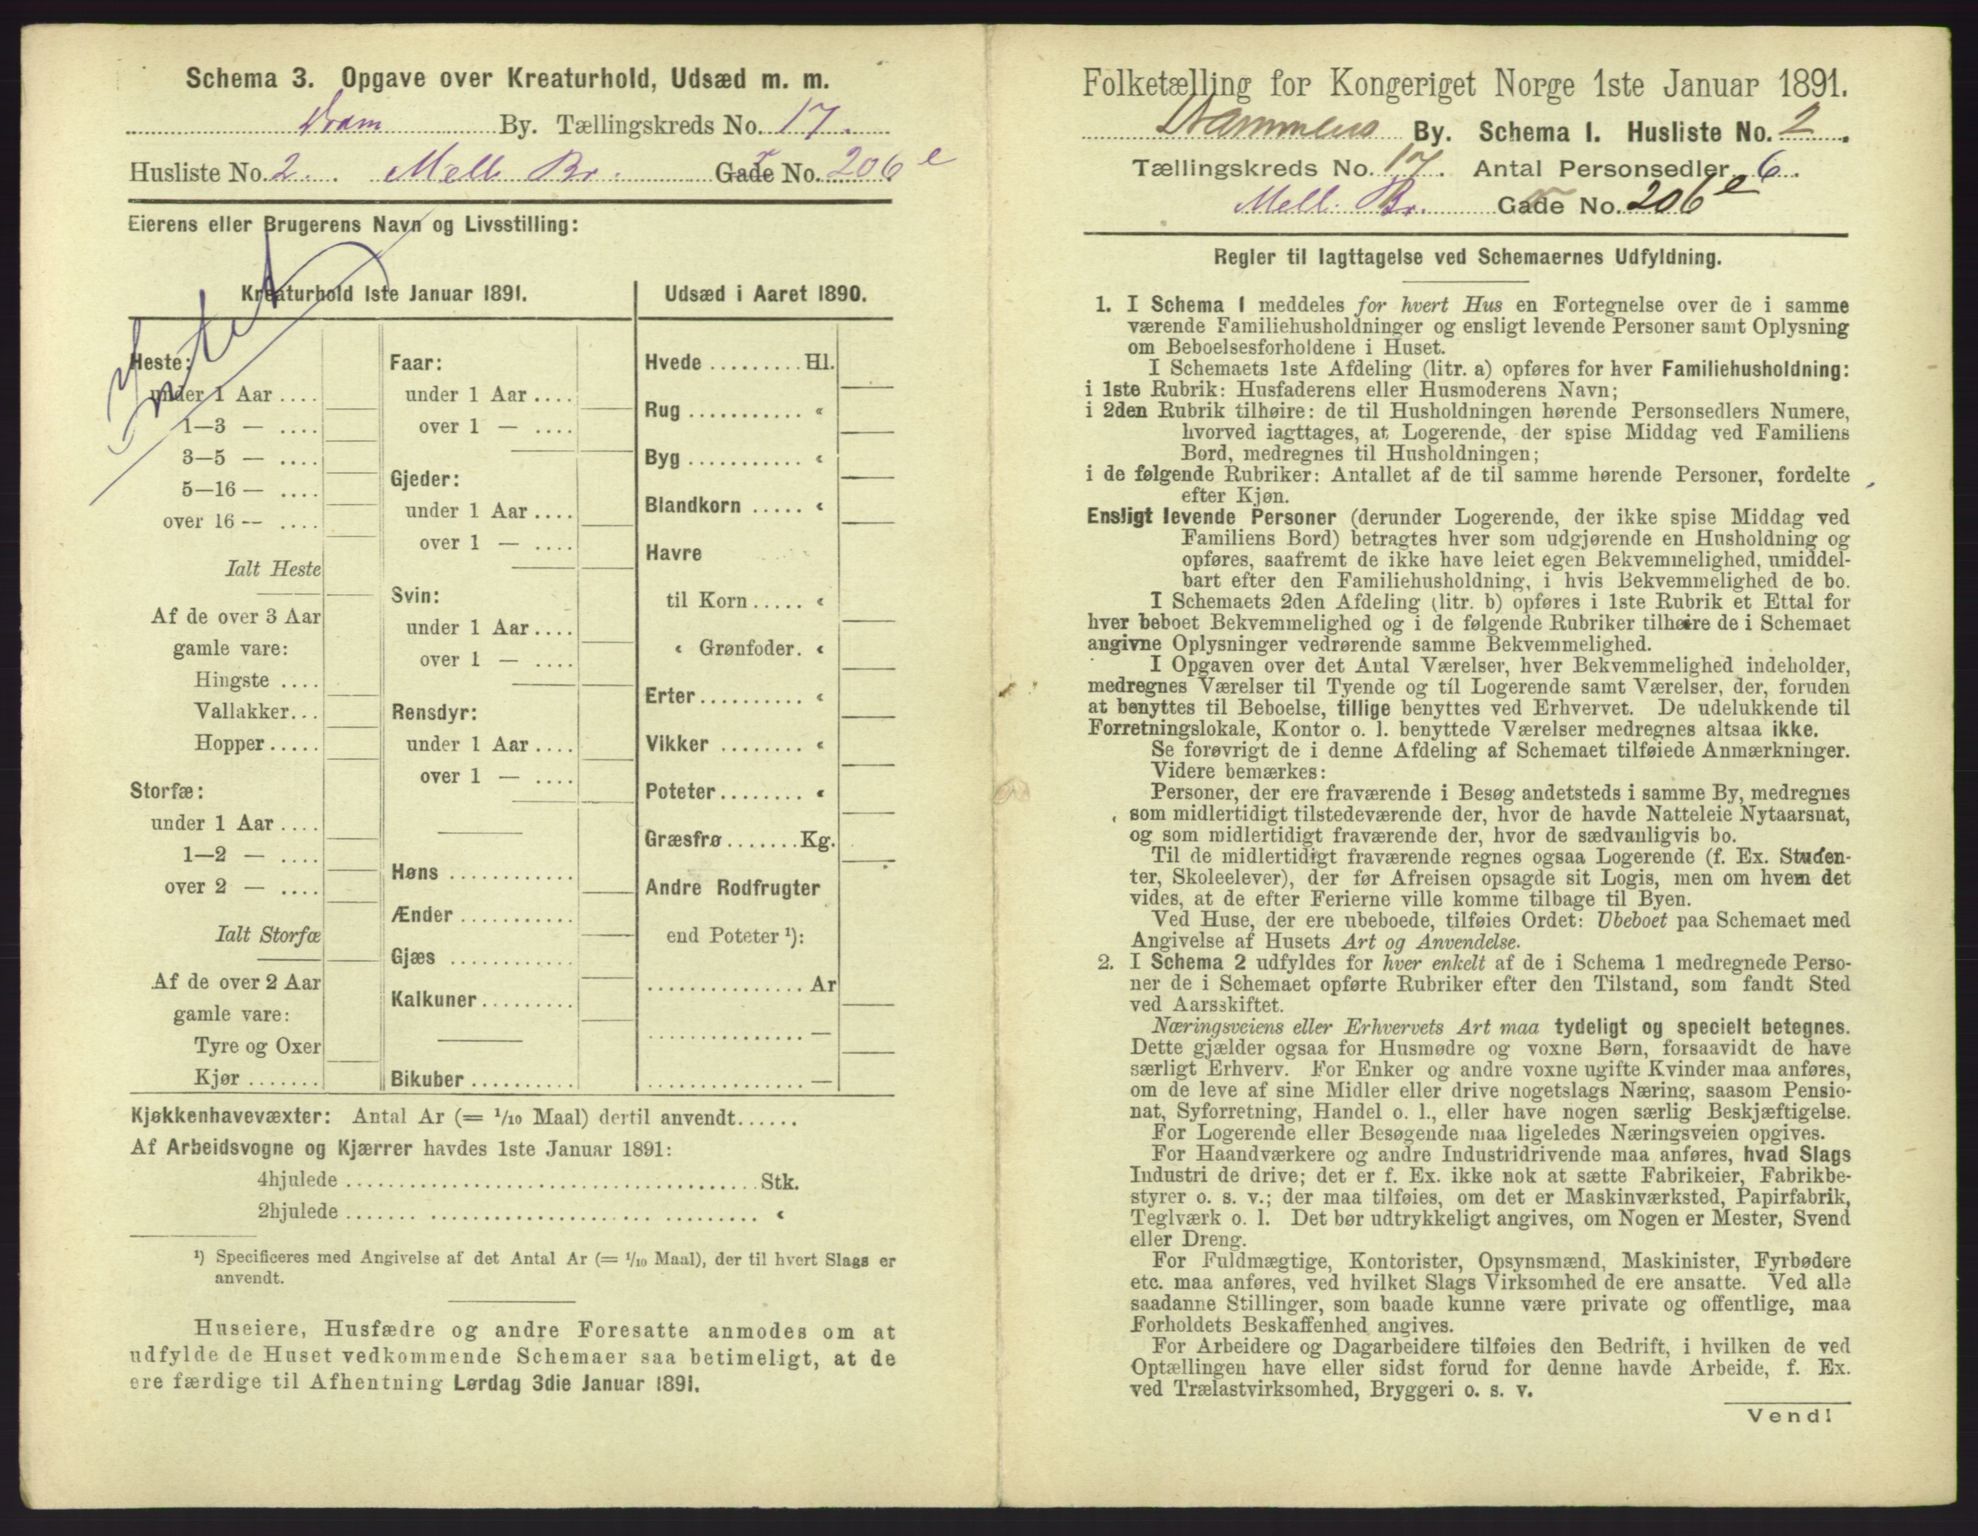 Schema 3. Opgave over Kreaturhold, Udsæd m. m.
Dram By. Tællingskreds No. 17.
Husliste No. 2. Mell. Br. Gade No. 206 e
Eierens eller Brugerens Navn og Livsstilling:
Intet
Kreaturhold 1ste Januar 1891.
Heste:
under 1 Aar ....
1—3 — ....
3—5 — ....
5—16 — ....
over 16 — ....
Ialt Heste
Af de over 3 Aar
gamle vare:
Hingste ....
Vallakker...
Hopper.....
Storfæ:
under 1 Aar ....
1—2 — ....
over 2 — ....
Ialt Storfæ
Af de over 2 Aar
gamle vare:
Tyre og Oxer
Kjør .......
Faar:
under 1 Aar ....
over 1 — ....
Gjeder:
under 1 Aar ....
over 1 — ....
Svin:
under 1 Aar ....
over 1 — ....
Rensdyr:
under 1 Aar ....
over 1 — ....
Høns ............
Ænder ...........
Gjæs ............
Kalkuner.........
Bikuber ..........
Udsæd i Aaret 1890.
Hvede ......... Hl.
Rug ........... «
Byg ........... «
Blandkorn ..... «
Havre
til Korn ..... «
« Grønfoder. «
Erter .......... «
Vikker ......... «
Poteter ........ «
Græsfrø ....... Kg.
Andre Rodfrugter
end Poteter ¹):
............... Ar
............... —
............... —
Kjøkkenhavevæxter: Antal Ar (= 1/10 Maal) dertil anvendt......
Af Arbeidsvogne og Kjærrer havdes 1ste Januar 1891:
4hjulede ........................................ Stk.
2hjulede ........................................ «
¹) Specificeres med Angivelse af det Antal Ar (= 1/10 Maal), der til hvert Slags er
anvendt.
Huseiere, Husfædre og andre Foresatte anmodes om at
udfylde de Huset vedkommende Schemaer saa betimeligt, at de
ere færdige til Afhentning Lørdag 3die Januar 1891.
Folketælling for Kongeriget Norge 1ste Januar 1891.
Drammens By. Schema I. Husliste No. 2.
Tællingskreds No. 17. Antal Personsedler 6.
Mell. Br. Gade No. 206 e
Regler til Iagttagelse ved Schemaernes Udfyldning.
1. I Schema 1 meddeles for hvert Hus en Fortegnelse over de i samme
værende Familiehusholdninger og ensligt levende Personer samt Oplysning
om Beboelsesforholdene i Huset.
I Schemaets 1ste Afdeling (litr. a) opføres for hver Familiehusholdning:
i 1ste Rubrik: Husfaderens eller Husmoderens Navn;
i 2den Rubrik tilhøire: de til Husholdningen hørende Personsedlers Numere,
hvorved iagttages, at Logerende, der spise Middag ved Familiens
Bord, medregnes til Husholdningen;
i de følgende Rubriker: Antallet af de til samme hørende Personer, fordelte
efter Kjøn.
Ensligt levende Personer (derunder Logerende, der ikke spise Middag ved
Familiens Bord) betragtes hver som udgjørende en Husholdning og
opføres, saafremt de ikke have leiet egen Bekvemmelighed, umiddel-
bart efter den Familiehusholdning, i hvis Bekvemmelighed de bo.
I Schemaets 2den Afdeling (litr. b) opføres i 1ste Rubrik et Ettal for
hver beboet Bekvemmelighed og i de følgende Rubriker tilhøire de i Schemaet
angivne Oplysninger vedrørende samme Bekvemmelighed.
I Opgaven over det Antal Værelser, hver Bekvemmelighed indeholder,
medregnes Værelser til Tyende og til Logerende samt Værelser, der, foruden
at benyttes til Beboelse, tillige benyttes ved Erhvervet. De udelukkende til
Forretningslokale, Kontor o. l. benyttede Værelser medregnes altsaa ikke.
Se forøvrigt de i denne Afdeling af Schemaet tilføiede Anmærkninger.
Videre bemærkes:
Personer, der ere fraværende i Besøg andetsteds i samme By, medregnes
som midlertidigt tilstedeværende der, hvor de havde Natteleie Nytaarsnat,
og som midlertidigt fraværende der, hvor de sædvanligvis bo.
Til de midlertidigt fraværende regnes ogsaa Logerende (f. Ex. Studen-
ter, Skoleelever), der før Afreisen opsagde sit Logis, men om hvem det
vides, at de efter Ferierne ville komme tilbage til Byen.
Ved Huse, der ere ubeboede, tilføies Ordet: Ubeboet paa Schemaet med
Angivelse af Husets Art og Anvendelse.
2. I Schema 2 udfyldes for hver enkelt af de i Schema 1 medregnede Perso-
ner de i Schemaet opførte Rubriker efter den Tilstand, som fandt Sted
ved Aarsskiftet.
Næringsveiens eller Erhvervets Art maa tydeligt og specielt betegnes.
Dette gjælder ogsaa for Husmødre og voxne Børn, forsaavidt de have
særligt Erhverv. For Enker og andre voxne ugifte Kvinder maa anføres,
om de leve af sine Midler eller drive nogetslags Næring, saasom Pensio-
nat, Syforretning, Handel o. l., eller have nogen særlig Beskjæftigelse.
For Logerende eller Besøgende maa ligeledes Næringsveien opgives.
For Haandværkere og andre Industridrivende maa anføres, hvad Slags
Industri de drive; det er f. Ex. ikke nok at sætte Fabrikeier, Fabrikbe-
styrer o. s. v.; der maa tilføies, om det er Maskinværksted, Papirfabrik,
Teglværk o. l. Det bør udtrykkeligt angives, om Nogen er Mester, Svend
eller Dreng.
For Fuldmægtige, Kontorister, Opsynsmænd, Maskinister, Fyrbødere
etc. maa anføres, ved hvilket Slags Virksomhed de ere ansatte. Ved alle
saadanne Stillinger, som baade kunne være private og offentlige, maa
Forholdets Beskaffenhed angives.
For Arbeidere og Dagarbeidere tilføies den Bedrift, i hvilken de ved
Optællingen have eller sidst forud for denne havde Arbeide, f. Ex.
ved Trælastvirksomhed, Bryggeri o. s. v.
Vend!